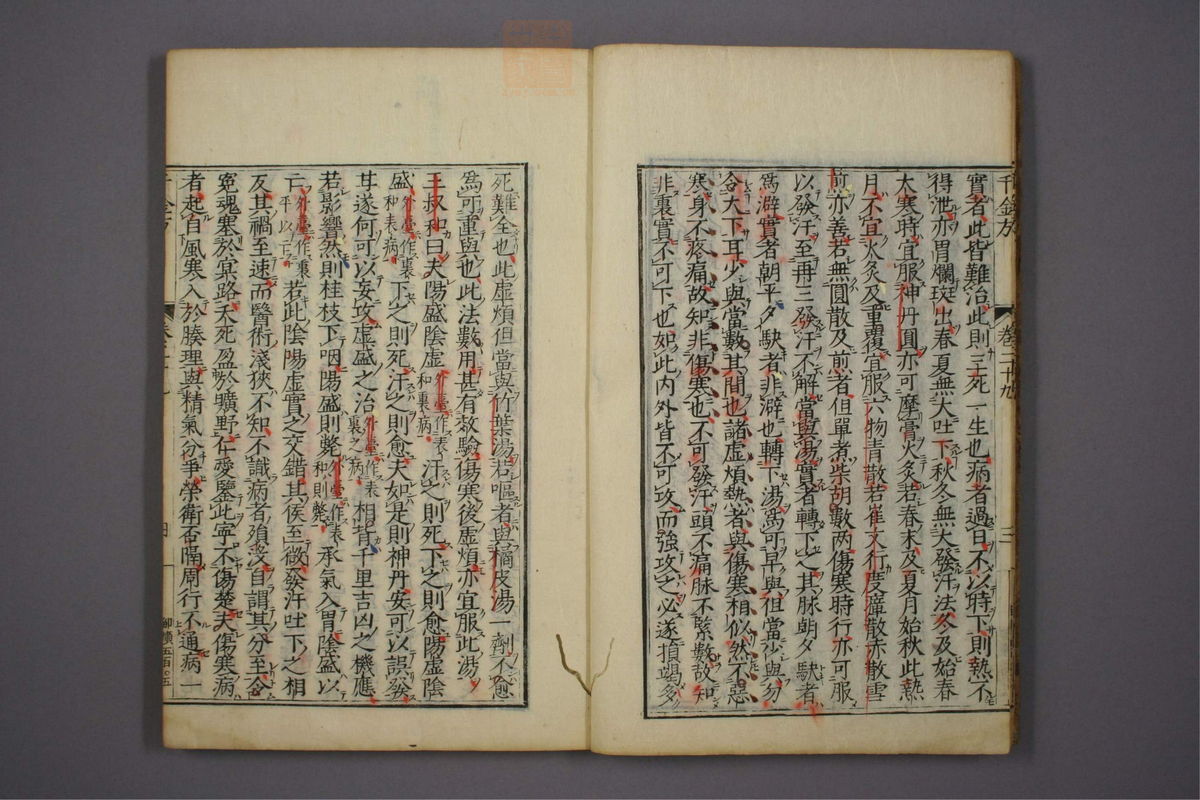 千金方 卷二十九 三
實者此皆難治此則三死一生也病者過日不以時下則熱不
得泄亦胃爛斑出春夏無大吐下秋冬無大發汗法冬及始春
太寒時宜服神丹圓亦可摩膏火灸若春末及夏月始秋此熱
月不宜火灸及重覆宜服六物青散若崔文行度瘴散赤散雪
煎亦善若無圓散及煎者但單煮柴胡數兩傷寒時行亦可服
以發汗至再三發汗不解當與湯實者轉下之其脉朝夕駃者
爲澼實者朝平夕駃者非澼也轉下湯爲可早與但當少與勿
令大下耳少與當數其間也諸虛煩熱者與傷寒相似然不惡
寒身不疼痛故知非傷寒也不可發汗頭不痛脉不緊數故知
非裏實不可下也如此内外皆不可攻而強攻之必遂損竭多
死難全也此虛煩但當與竹葉湯若嘔者與橘皮湯一劑不愈
爲可重與也此法數用甚有效驗傷寒後虛煩亦宜服此湯
王叔和曰夫陽盛陰虛外臺作表和裏病汗之則死下之則愈陽虛陰
盛外臺作裏和表病下之則死汗之則愈夫如是則神丹安可以誤發
甘遂何可以妄攻虛盛之治外臺作表裏之病相背千里吉凶之機應
若影響然則桂枝下咽陽盛則斃外臺作表和則斃承氣入胃陰盛以
亡外臺作裏平以亡若此陰陽虛實之交錯其候至微發汗吐下之相
反其禍至速而醫術淺狹不知不識病者殞没自謂其分至令
冤魂塞於冥路夭死盈於曠野仁愛鑒此寧不傷楚夫傷寒病
者起自風寒入於腠理與精氣分爭榮衛否隔周行不通病一
四